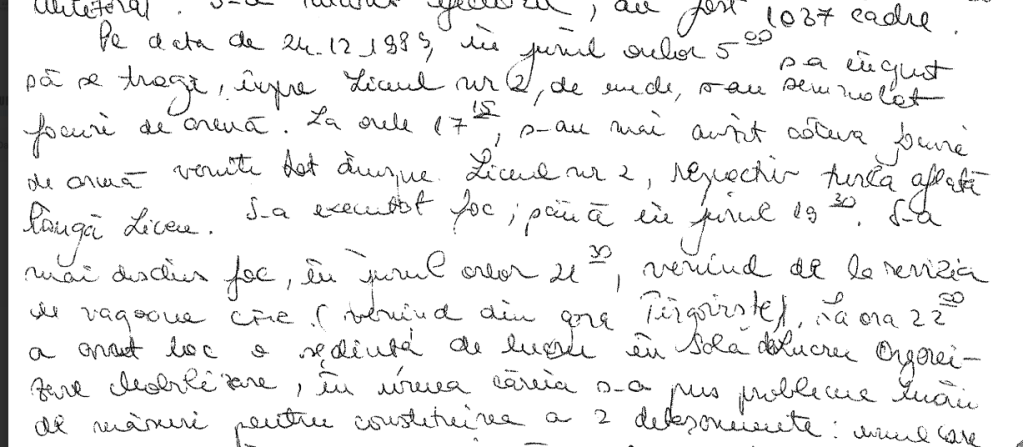 au fost 1037 cadre.
Pe data de 24.12.1989, în jurul orelor 5⁰⁰ s-a început
să se tragă, înspre Liceul nr 2, de unde, s-au semnalat
focuri de armă. La orele 17¹⁵, s-au mai auzit câteva focuri
de armă venite tot dinspre Liceul nr 2, respectiv turla aflată
lângă Liceu. S-a executat foc, până în jurul 19³⁰. S-a
mai deschis foc, în jurul orelor 21³⁰, venind de la revizia
de vagoane CFR (venind din gara Tîrgoviște). La ora 22⁰⁰
a avut loc o ședință de lucru în Sala de Lucru Organi-
zare Mobilizare, în urma căreia s-a pus problema luării
de măsuri pentru constituirea a 2 detașamente: unul care